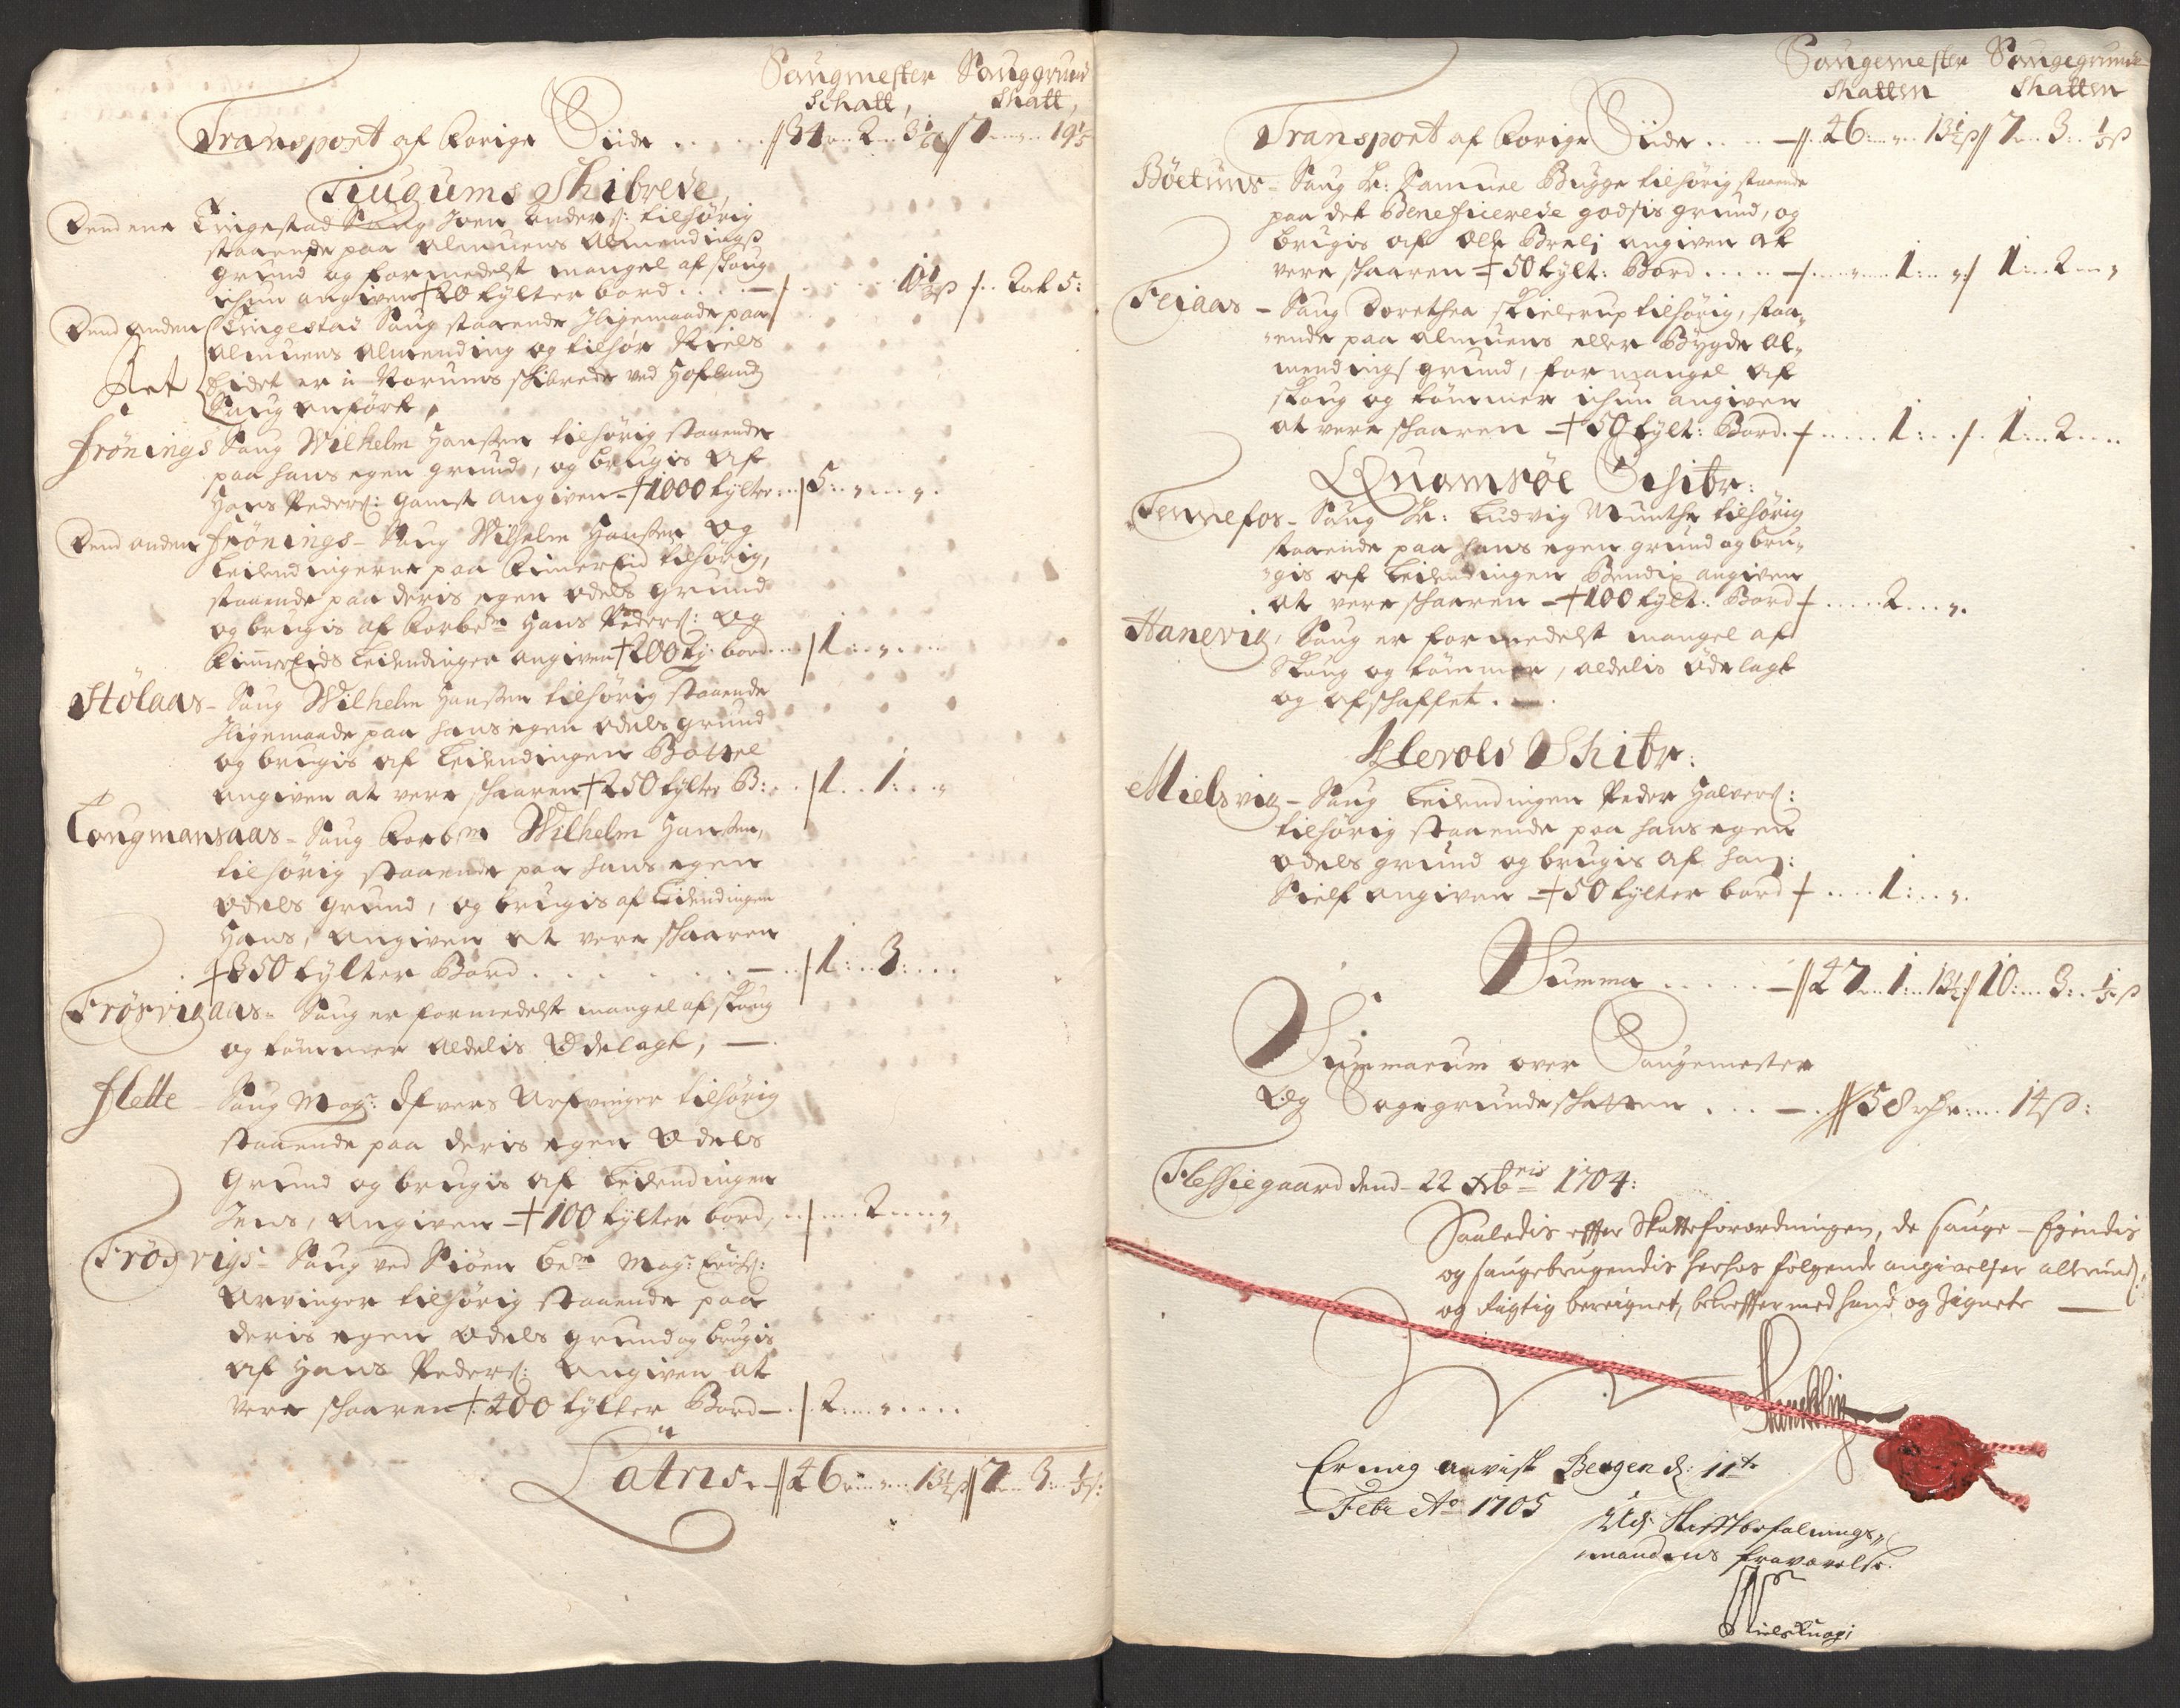 Saugmester Sauggrund
Schatt, Skatt,
Transport af Forige Siide
Tiugums Skibrede
Dend ene Tingestad Saug Iven Anders: tilhørig
staaende paa Almuens Almendings
grund og formedelst mangel af skoug
ichun angiven 20 tylter bord
Dend anden Tingestad Saug staaende Iligemaade paa
Almuens Almending og tilhør Niels
er i Norums skibrede ved Hofland
Saug anført,
Frönings Saug Wilhelm Hanssen tilhørig staaende
paa hans egen grund, og brugis af
Hans Peders: Gamst angiven 1000 tylter 5
Dend anden Frönings Saug Wilhelm Hanssen og
Leilendingerne paa Rimereid tilhørig,
staaende paa deris egen odels grund
og brugis af Forbem Hans Peders: og
Rimereids Leilendinger angiven 200 ty: bord 1
Stölaas Saug Wilhelm Hanssen tilhørig staaende
Iligemaade paa hans egen odels grund
og brugis af Leilendingen Bottel
angiven at vere skaaren 250 tylter B: 1 1
Lougmansaas Saug Forbm Wilhelm Hanssen,
tilhørig staaende paa hans egen
odels grund, og brugis af Leilendingen
Hans, angiven at vere skaaren
350 tylter Bord 1 3
Frösvigaas Saug er formedelst mangel af skoug
og tömmer aldelis Ödelagt,
Flette Saug Magr: Arfvinger tilhørig
staaende paa deris egen Odels
Grund og brugis af Leilendingen
Jens, angiven 100 tylter bord, 2
Frösvigs Saug ved Siøen bem Magr:
Arvinger tilhørig staaende paa
deris egen odels grund og brugis
af Hans Peders: angiven at
vere skaaren 400 tylter Bord 2
Latris 46 13½ ß 7 3
Saugemester Saugegrunde
Skatten Skatten
Transport af Forige Siide 46 13½ ß 7 3
Böetuns Saug Hr: Samuel Bugge tilhørig staaende
paa det Beneficerede godsis grund, og
brugis af Ole angiven at
vere skaaren 50 tylt: Bord 1 1 2
Feiaas Saug Dorethea Skielerup tilhørig, staa-
ende paa Almuens eller Bygde Al-
mendings grund, for mangel af
skoug og tömmer ichun angiven
at vere skaaren 50 tylt: Bord 1 1 2
Quamsöe Schibr:
Tennefos Saug Hr: Ludvig Munthe tilhørig
staaende paa hans egen grund og bru-
gis af Leilendingen Bendix angiven
at vere skaaren 100 tylt: Bord 2
Hanevig, Saug er formedelst mangel af
Skoug og tömmer, aldelis ödelagt
og afschaffet.
Klevold Skibr:
Mielsvig Saug Leilendingen Peder Halvers:
tilhørig staaende paa hans egen
odels grund og brugis af ham
Sielf angiven 50 tylter bord 1
Summa 47 1 13½ 10 3
Summarum over Saugemester
Og Sagegrundeskatten 58 14 ß:
Flessiegaard dend 22 Xbris 1704:
Saaledis efter Skatteforordningen, de sauge Ejendis
og saugebrugendis herhos følgende angivelser
og rigtig bereignet, bekrefter med hand og Zignete
Er mig anvist Bergen d: 11te
Febr Ao 1705
Udj Stiftbefalnings-
mandens fraværelse.